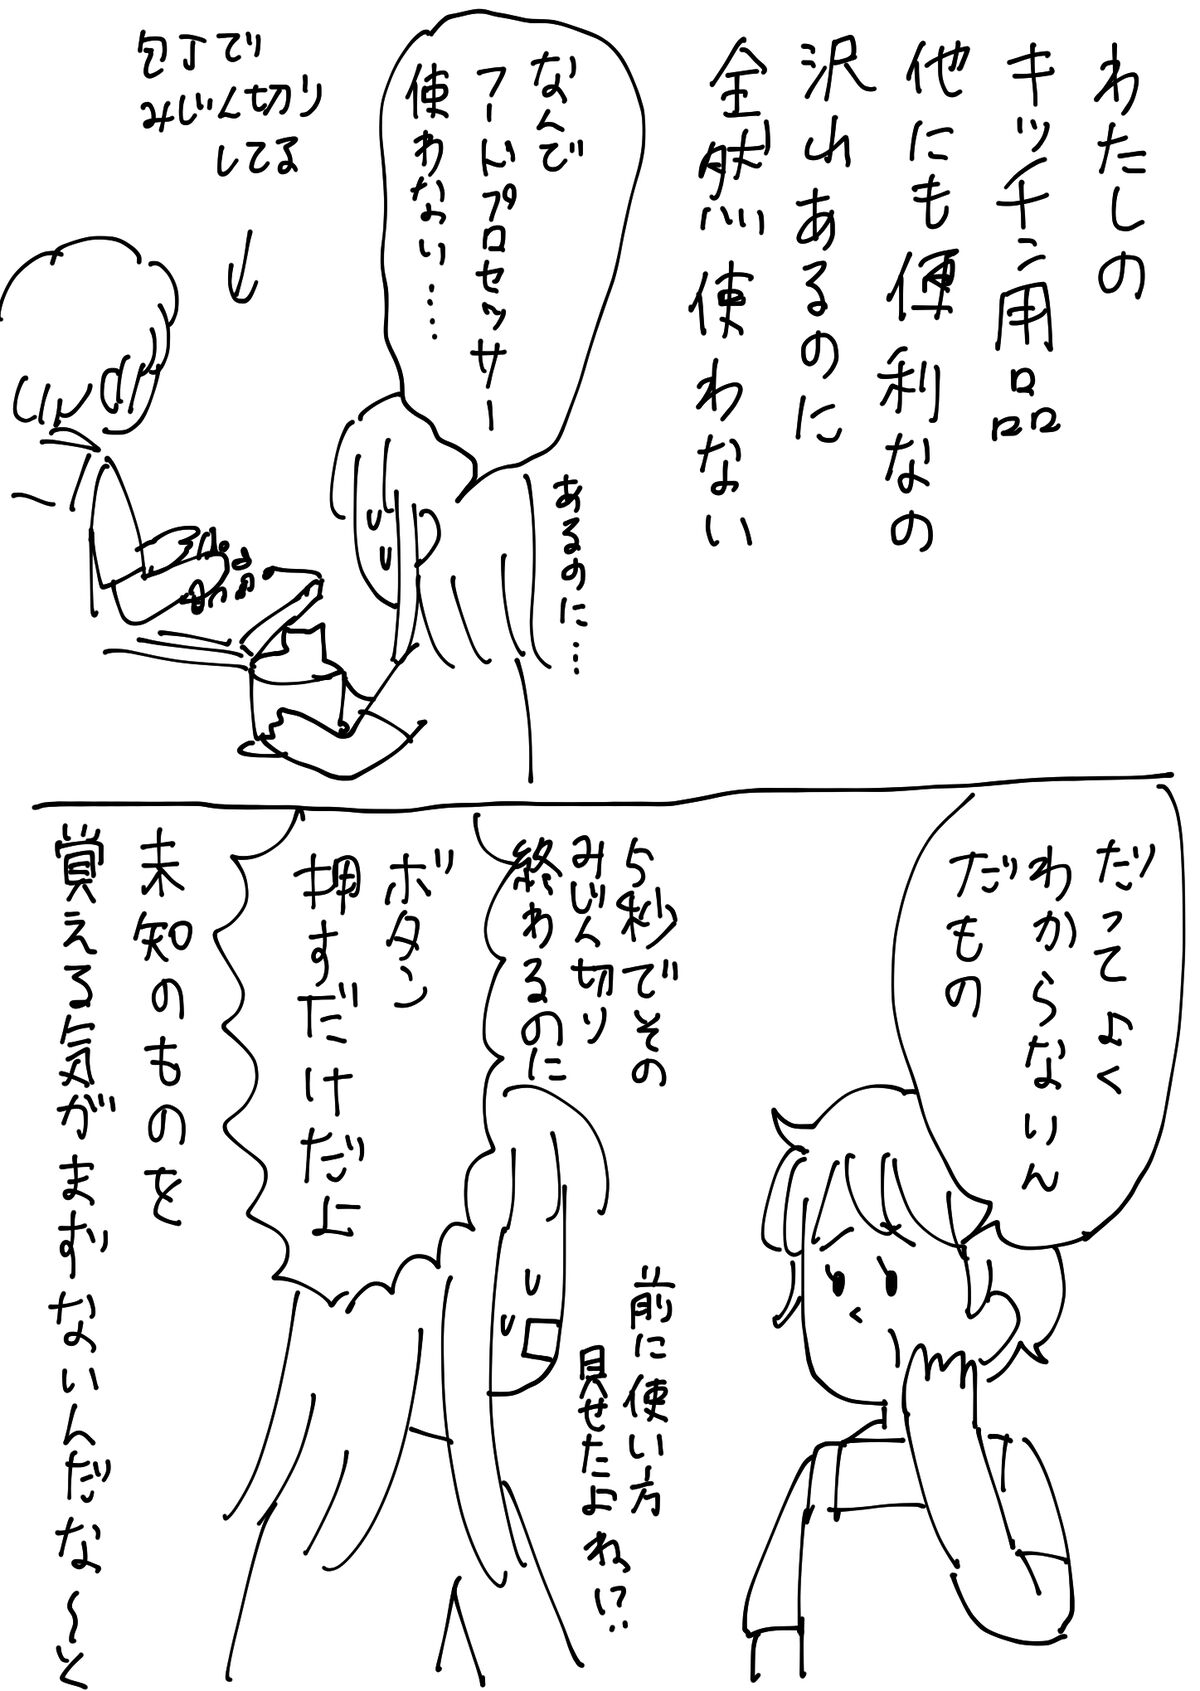 わたしの
キッチン用品
他にも便利なの
沢山あるのに
全然使わない
なんで
フードプロセッサー
使わない…
あるのに…
包丁で
みじん切り
してる
だってよく
わからないん
だもの
5秒でその
みじん切り
終わるのに
ボタン
押すだけだよ
前に使い方
見せたよね!?
未知のものを
覚える気がまずないんだな〜と